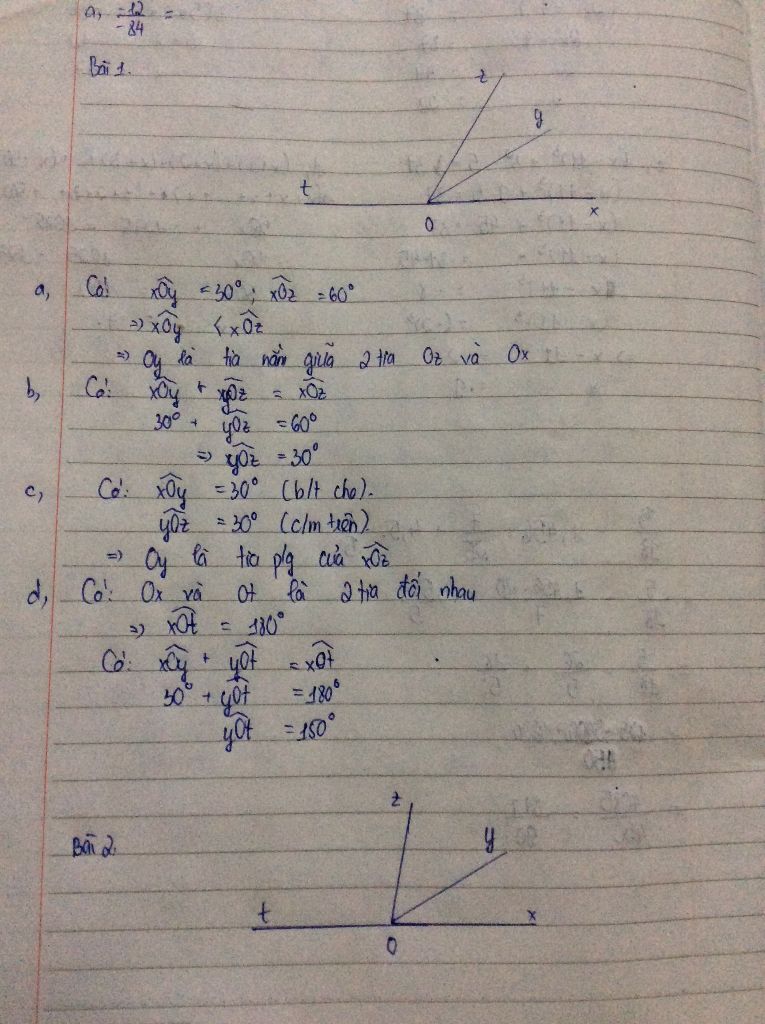 a, -12/-84 =
Bài 1.
z
y
t
x
O
a, Có: xÔy = 30° ; xÔz = 60°
=> xÔy < xÔz
=> Oy là tia nằm giữa 2 tia Oz và Ox
b, Có: xÔy + yÔz = xÔz
30° + yÔz = 60°
=> yÔz = 30°
c, Có: xÔy = 30° (b/t cho).
yÔz = 30° (c/m trên).
=> Oy là tia p/g của xÔz
d, Có: Ox và Ot là 2 tia đối nhau
=> xÔt = 180°
Có: xÔy + yÔt = xÔt
30° + yÔt = 180°
yÔt = 150°
Bài 2.
z
y
t
x
O